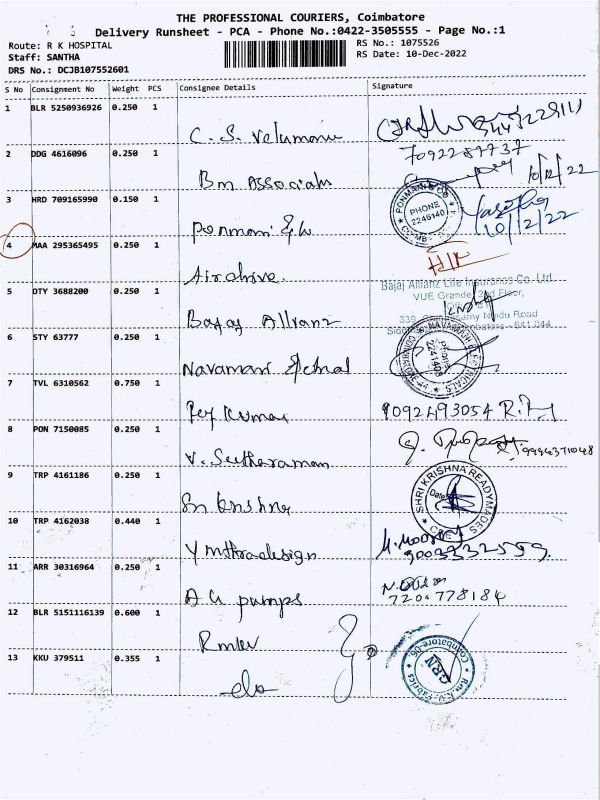 THE PROFESSIONAL COURIERS, Coimbatore
Delivery Runsheet - PCA - Phone No.:0422-3505555 - Page No.:1
Route: R K HOSPITAL
RS No.: 1075526
Staff: SANTHA
RS Date: 10-Dec-2022
DRS No.: DCJB107552601
S No Consignment No Weight PCS Consignee Details Signature
1 BLR 5250936926 0.250 1
C. S. Velumani
7092287737
2 DDG 4616096 0.250 1
Bm Associats 10/12/22
3 HRD 709165990 0.150 1
PONMANI & CO
PHONE
2246140
10/12/22
Ponmani
4 MAA 295365495 0.250 1
Airdrive.
Bajaj Allianz Life Insurance Co. Ltd
VUE Grande, 2nd Floor,
5 DTY 3688200 0.250 1
Bajaj Allianz
6 STY 63777 0.250 1
NAVAMANI ELECTRICALS
Navamani
7 TVL 6310562 0.750 1
Jey Kumar 9092493054
8 PON 7150085 0.250 1
V. Seetharaman
9 TRP 4161186 0.250 1
SHRI KRISHNA READYMADES
Date
Sri Krishna
10 TRP 4162038 0.440 1
Y mithradesign
11 ARR 30316964 0.250 1
A U pumps 7200778184
12 BLR 5151116139 0.600 1
Rmkv
13 KKU 379511 0.355 1
Coimbatore-06.
GRN
Rm.K.V. Fabrics
do